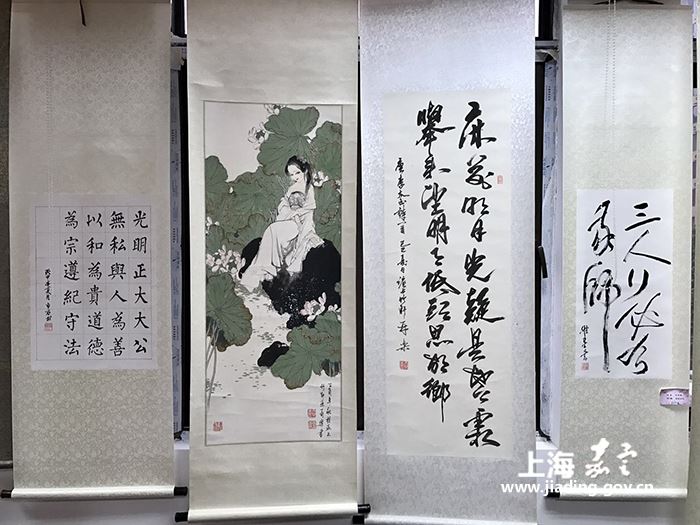 光明正大大公
無私與人為善
以和為貴道德
為宗遵紀守法
床前明月光疑是地上霜
舉頭望明月低頭思故鄉
三人行必有
我師
上海嘉定
www.jiading.gov.cn